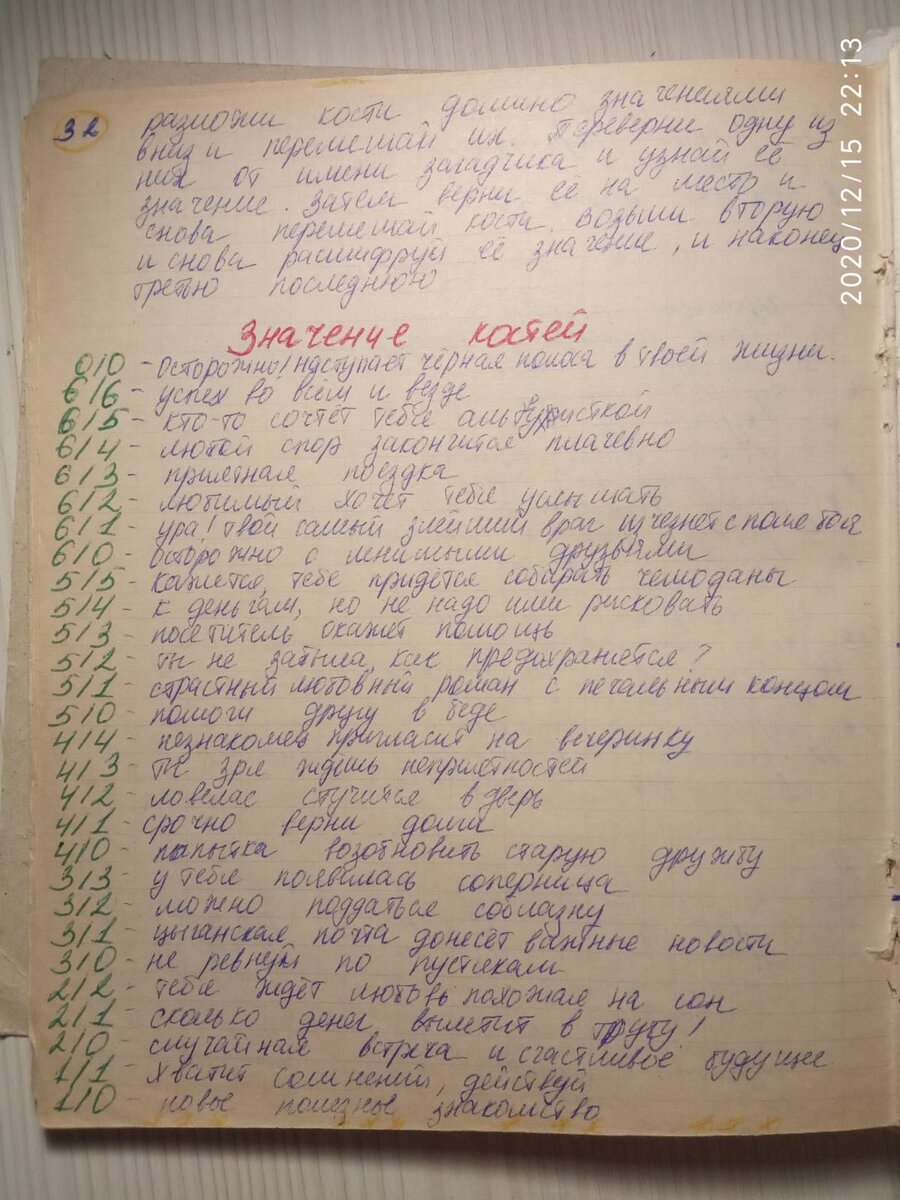 32
разложи кости домино значениями
вниз и перемешай их. Переверни одну из
них от имени загадчика и узнай её
значение. Затем верни её на место и
снова перемешай кости. Возьми вторую
и снова расшифруй её значение, и наконец
третью последнюю
Значение костей
0/0 - Осторожно! наступает чёрная полоса в твоей жизни.
6/6 - успех во всём и везде
6/5 - кто-то сочтёт тебя альтруисткой
6/4 - любой спор закончится плачевно
6/3 - приятная поездка
6/2 - любимый хочет тебя услышать
6/1 - ура! твой самый злейший враг исчезнет с поля боя
6/0 - осторожно с мнимыми друзьями
5/5 - кажется, тебе придётся собирать чемоданы
5/4 - к деньгам, но не надо ими рисковать
5/3 - посетитель окажет помощь
5/2 - ты не забыла, как предохраняться?
5/1 - страстный любовный роман с печальным концом
5/0 - помоги другу в беде
4/4 - незнакомец пригласит на вечеринку
4/3 - ты зря ждёшь неприятностей
4/2 - ловелас стучится в дверь
4/1 - срочно верни долги
4/0 - попытка возобновить старую дружбу
3/3 - у тебя появилась соперница
3/2 - можно поддаться соблазну
3/1 - цыганская почта донесёт важные новости
3/0 - не ревнуй по пустякам
2/2 - тебя ждёт любовь похожая на сон
2/1 - сколько денег вылетит в трубу!
2/0 - случайная встреча и счастливое будущее
1/1 - хватит сомнений, действуй
1/0 - новое полезное знакомство
2020/12/15 22:13